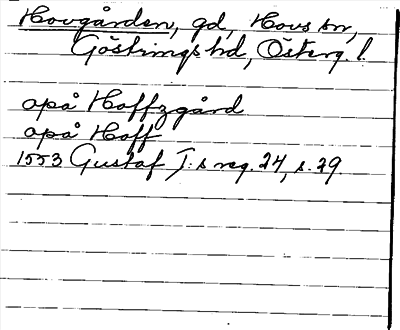 Hovgården, gd, Hovs sn,
Göstrings hd, Österg. l.
opå Hoffzgård
opå Hoff
1553 Gustaf I:s reg. 24, s. 29.